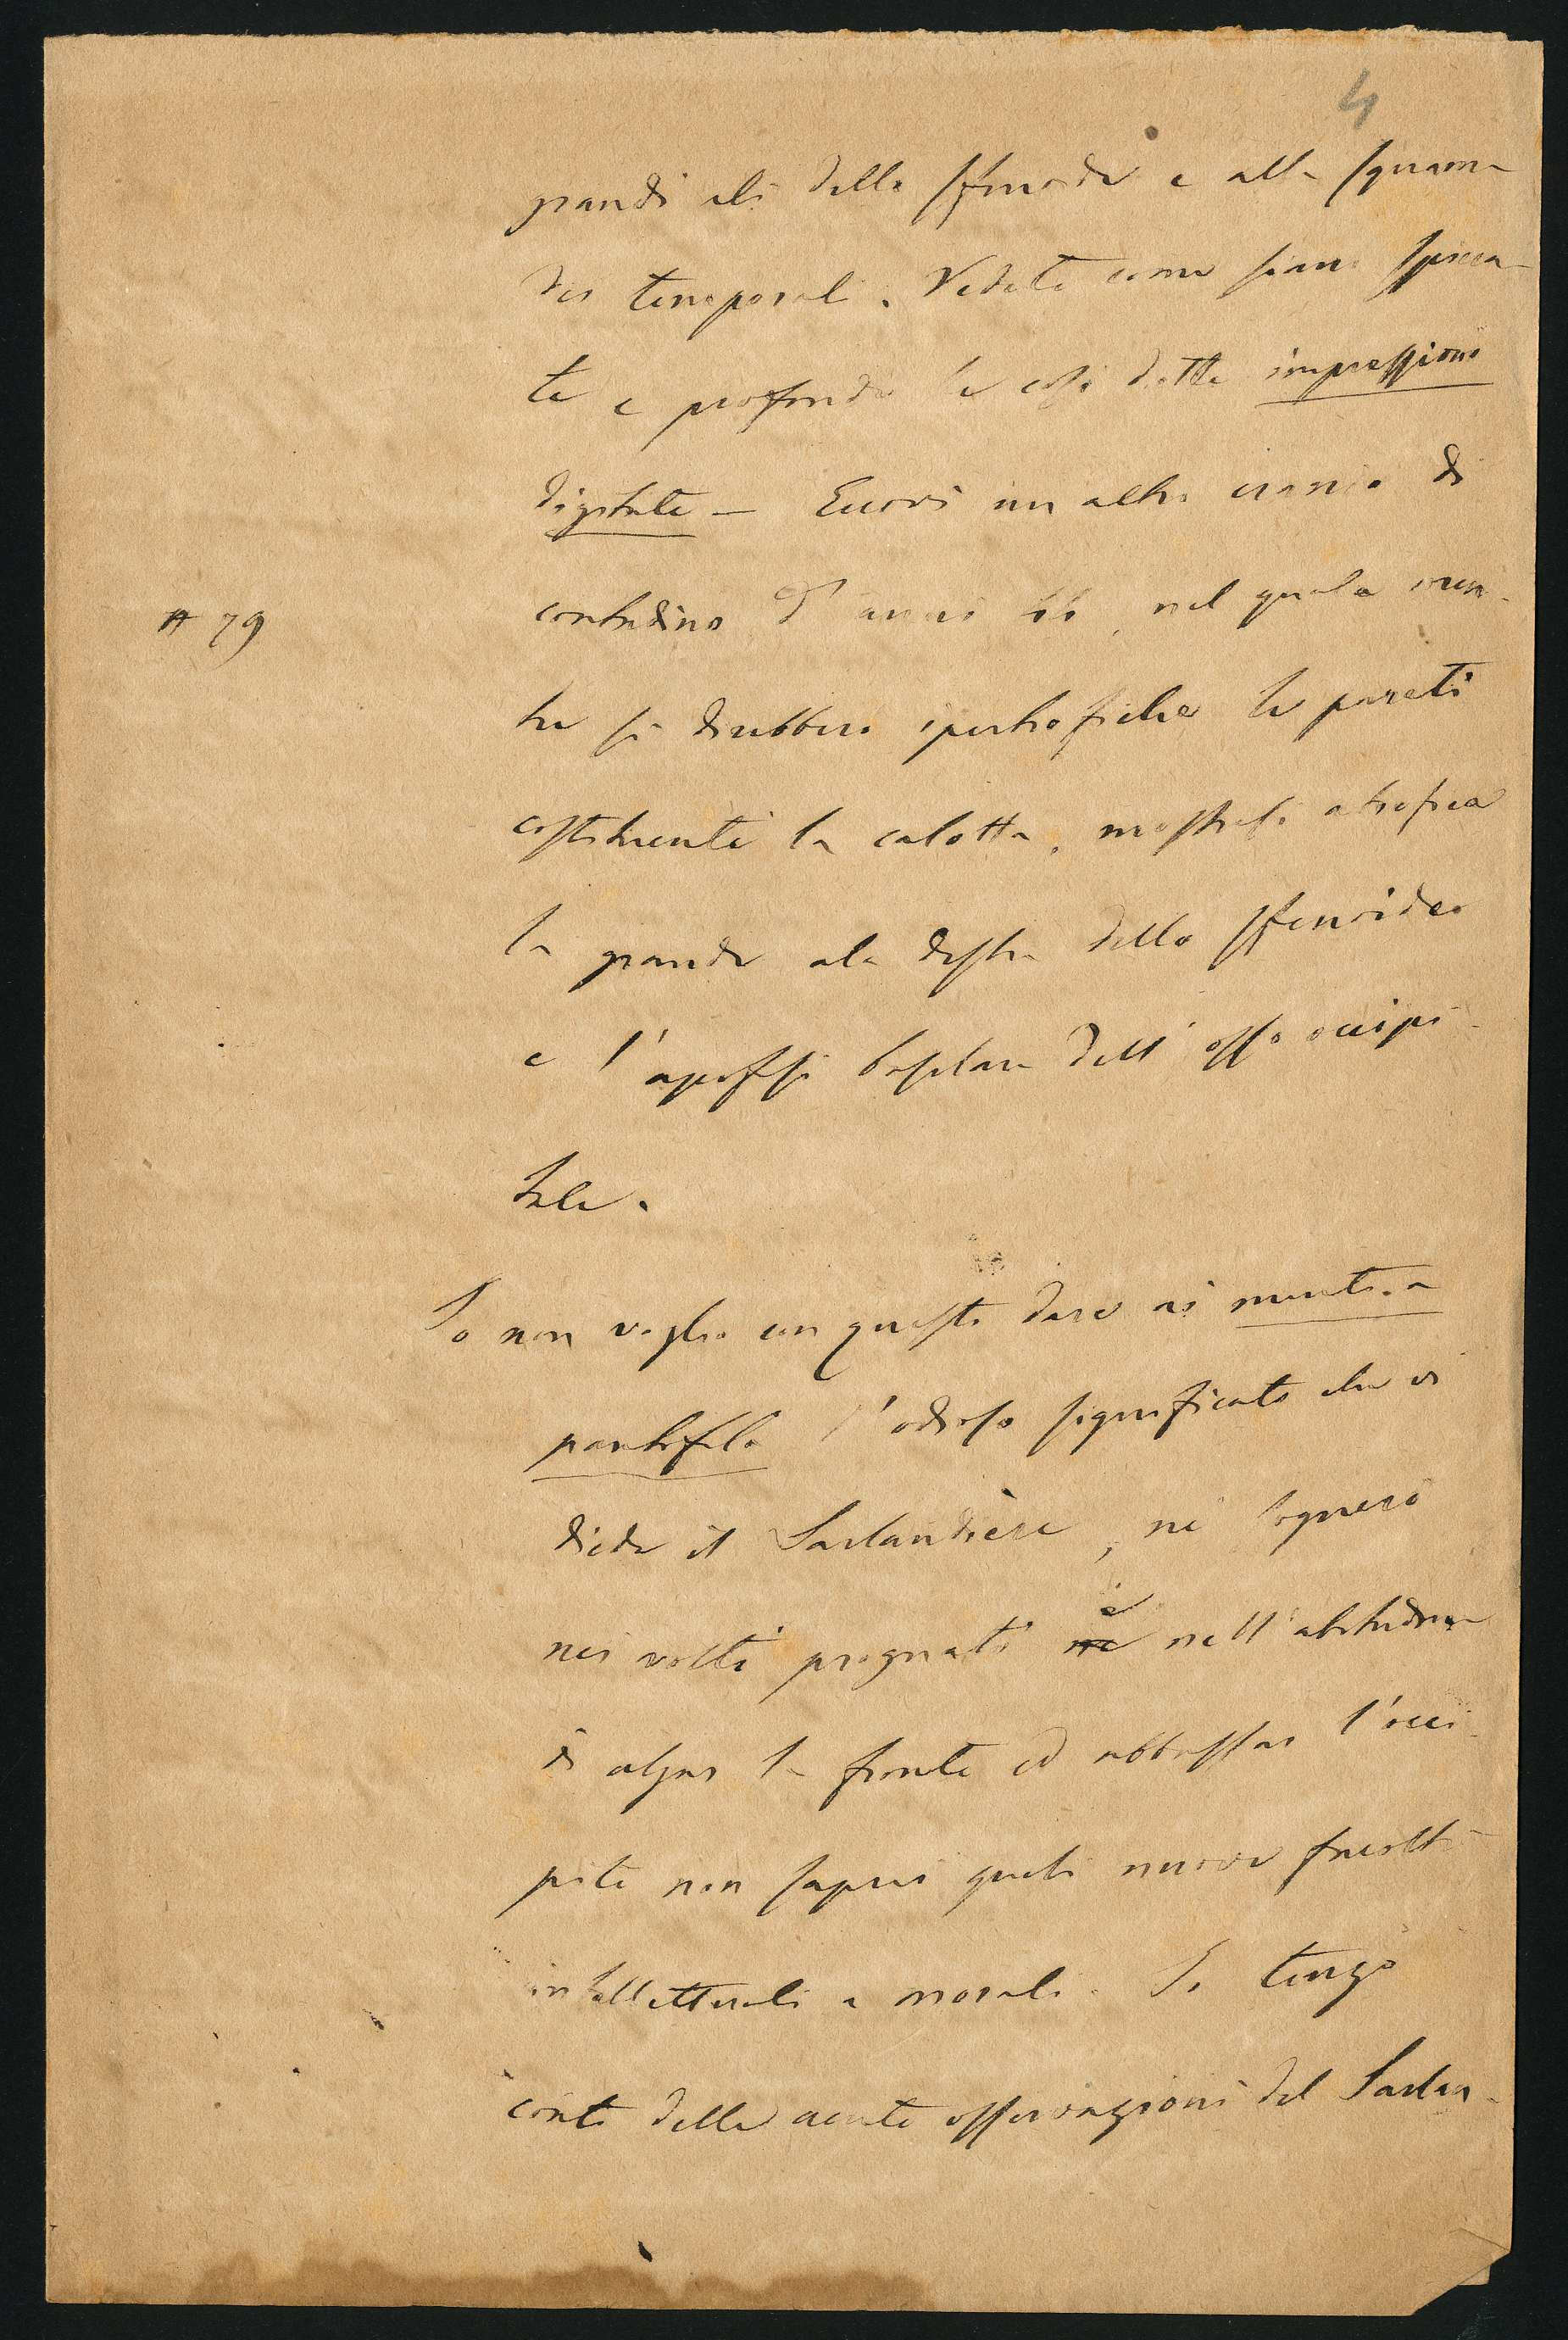 4
grandi ali dello sfenoide e alla squama
dei temporali. Vedete come siano spicca-
te e profonde le così dette impressioni
digitate — Eccovi un altro cranio di
# 79
contadino d'anni nel quale men-
tre si direbbero ipertrofiche le pareti
costituenti la calotta, mostrasi atrofica
la grande ala destra dello sfenoide
e l'apofisi basilare dell'osso occipi-
tale.
Io non voglio con questo dare ai
l'odioso significato che vi
diede il Sarlandière, nè sognerò
nei volti prognati ne è nell'abitudine
di alzar la fronte ed abbassar l'occi-
pite non saprei quali nuove facoltà
intellettuali e morali. Io tengo
conto delle acute osservazioni del Sarlan-